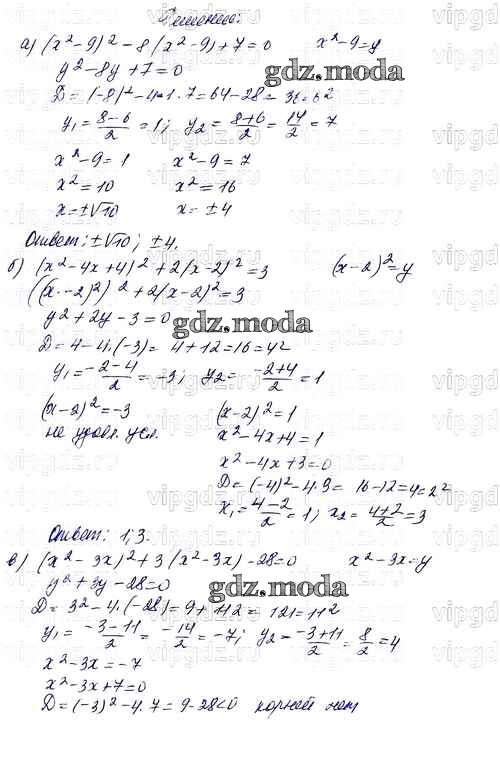 Решение:
а) (x²-9)²-8(x²-9)+7=0 x²-9=y
y²-8y+7=0
D=(-8)²-4·1·7=64-28=36=6²
y₁=(8-6)/2=1; y₂=(8+6)/2=14/2=7
x²-9=1 x²-9=7
x²=10 x²=16
x=±√10 x=±4
Ответ: ±√10; ±4.
б) (x²-4x+4)²+2(x-2)²=3 (x-2)²=y
((x-2)²)²+2(x-2)²=3
y²+2y-3=0
D=4-4·(-3)=4+12=16=4²
y₁=(-2-4)/2=-3; y₂=(-2+4)/2=1
(x-2)²=-3 (x-2)²=1
не удовл. усл. x²-4x+4=1
x²-4x+3=0
D=(-4)²-4·3=16-12=4=2²
x₁=(4-2)/2=1; x₂=(4+2)/2=3
Ответ: 1; 3.
в) (x²-3x)²+3(x²-3x)-28=0 x²-3x=y
y²+3y-28=0
D=3²-4·(-28)=9+112=121=11²
y₁=(-3-11)/2=-14/2=-7; y₂=(-3+11)/2=8/2=4
x²-3x=-7
x²-3x+7=0
D=(-3)²-4·7=9-28<0 корней нет
gdz.moda
gdz.moda
gdz.moda